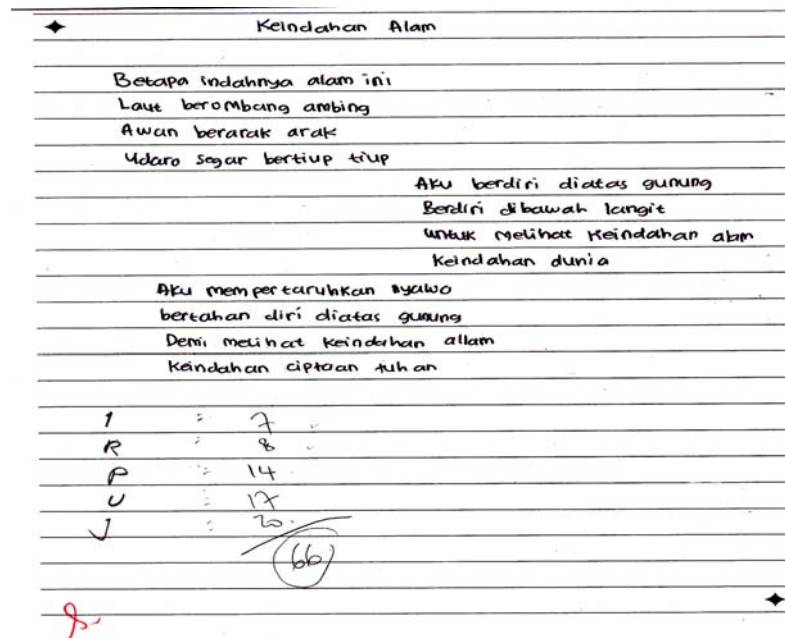 Keindahan Alam
Betapa indahnya alam ini
Laut berombang ambing
Awan berarak arak
Udaro segar bertiup tiup
Aku berdiri diatas gunung
Berdiri dibawah langit
untuk melihat keindahan alam
keindahan dunia
Aku mempertaruhkan nyawo
bertahan diri diatas gunung
Demi melihat keindahan allam
keindahan ciptaan tuhan
1 : 7
R : 8
P : 14
U : 17
J : 20
66